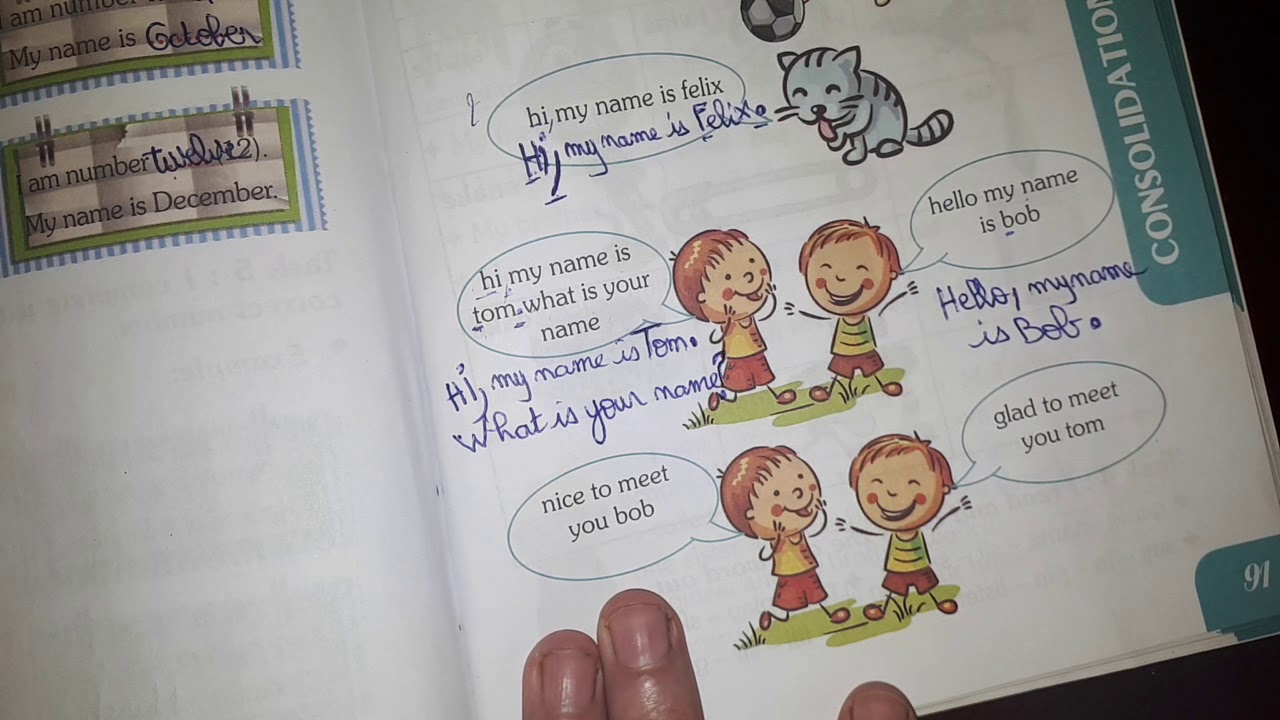 am number
My name is October
I am number twelve 2).
My name is December.
hi, my name is felix
Hi, my name is Felix.
hi, my name is
tom. what is your
name
Hi, my name is Tom.
What is your name?
hello my name
is bob
Hello, my name
is Bob.
nice to meet
you bob
glad to meet
you tom
CONSOLIDATION
91